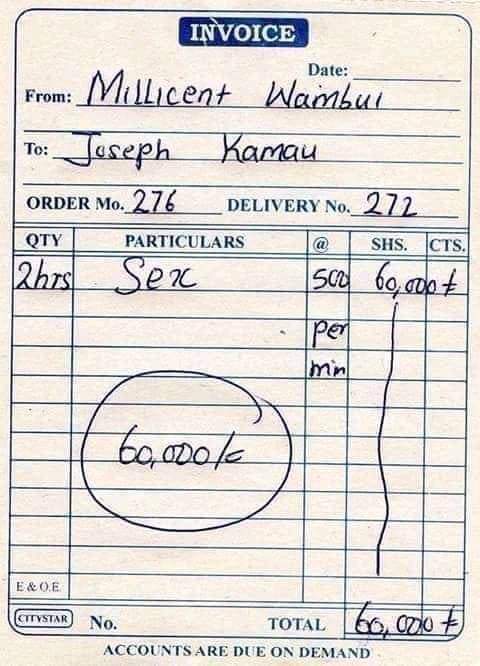 INVOICE
Date:
From: Millicent Wambui
To: Joseph Kamau
ORDER Mo. 276 DELIVERY No. 272
QTY PARTICULARS @ SHS. CTS.
2hrs Sex 500 60,000 ≠
per
min
60,000/=
E & O.E.
CITYSTAR No. TOTAL 60,000 ≠
ACCOUNTS ARE DUE ON DEMAND